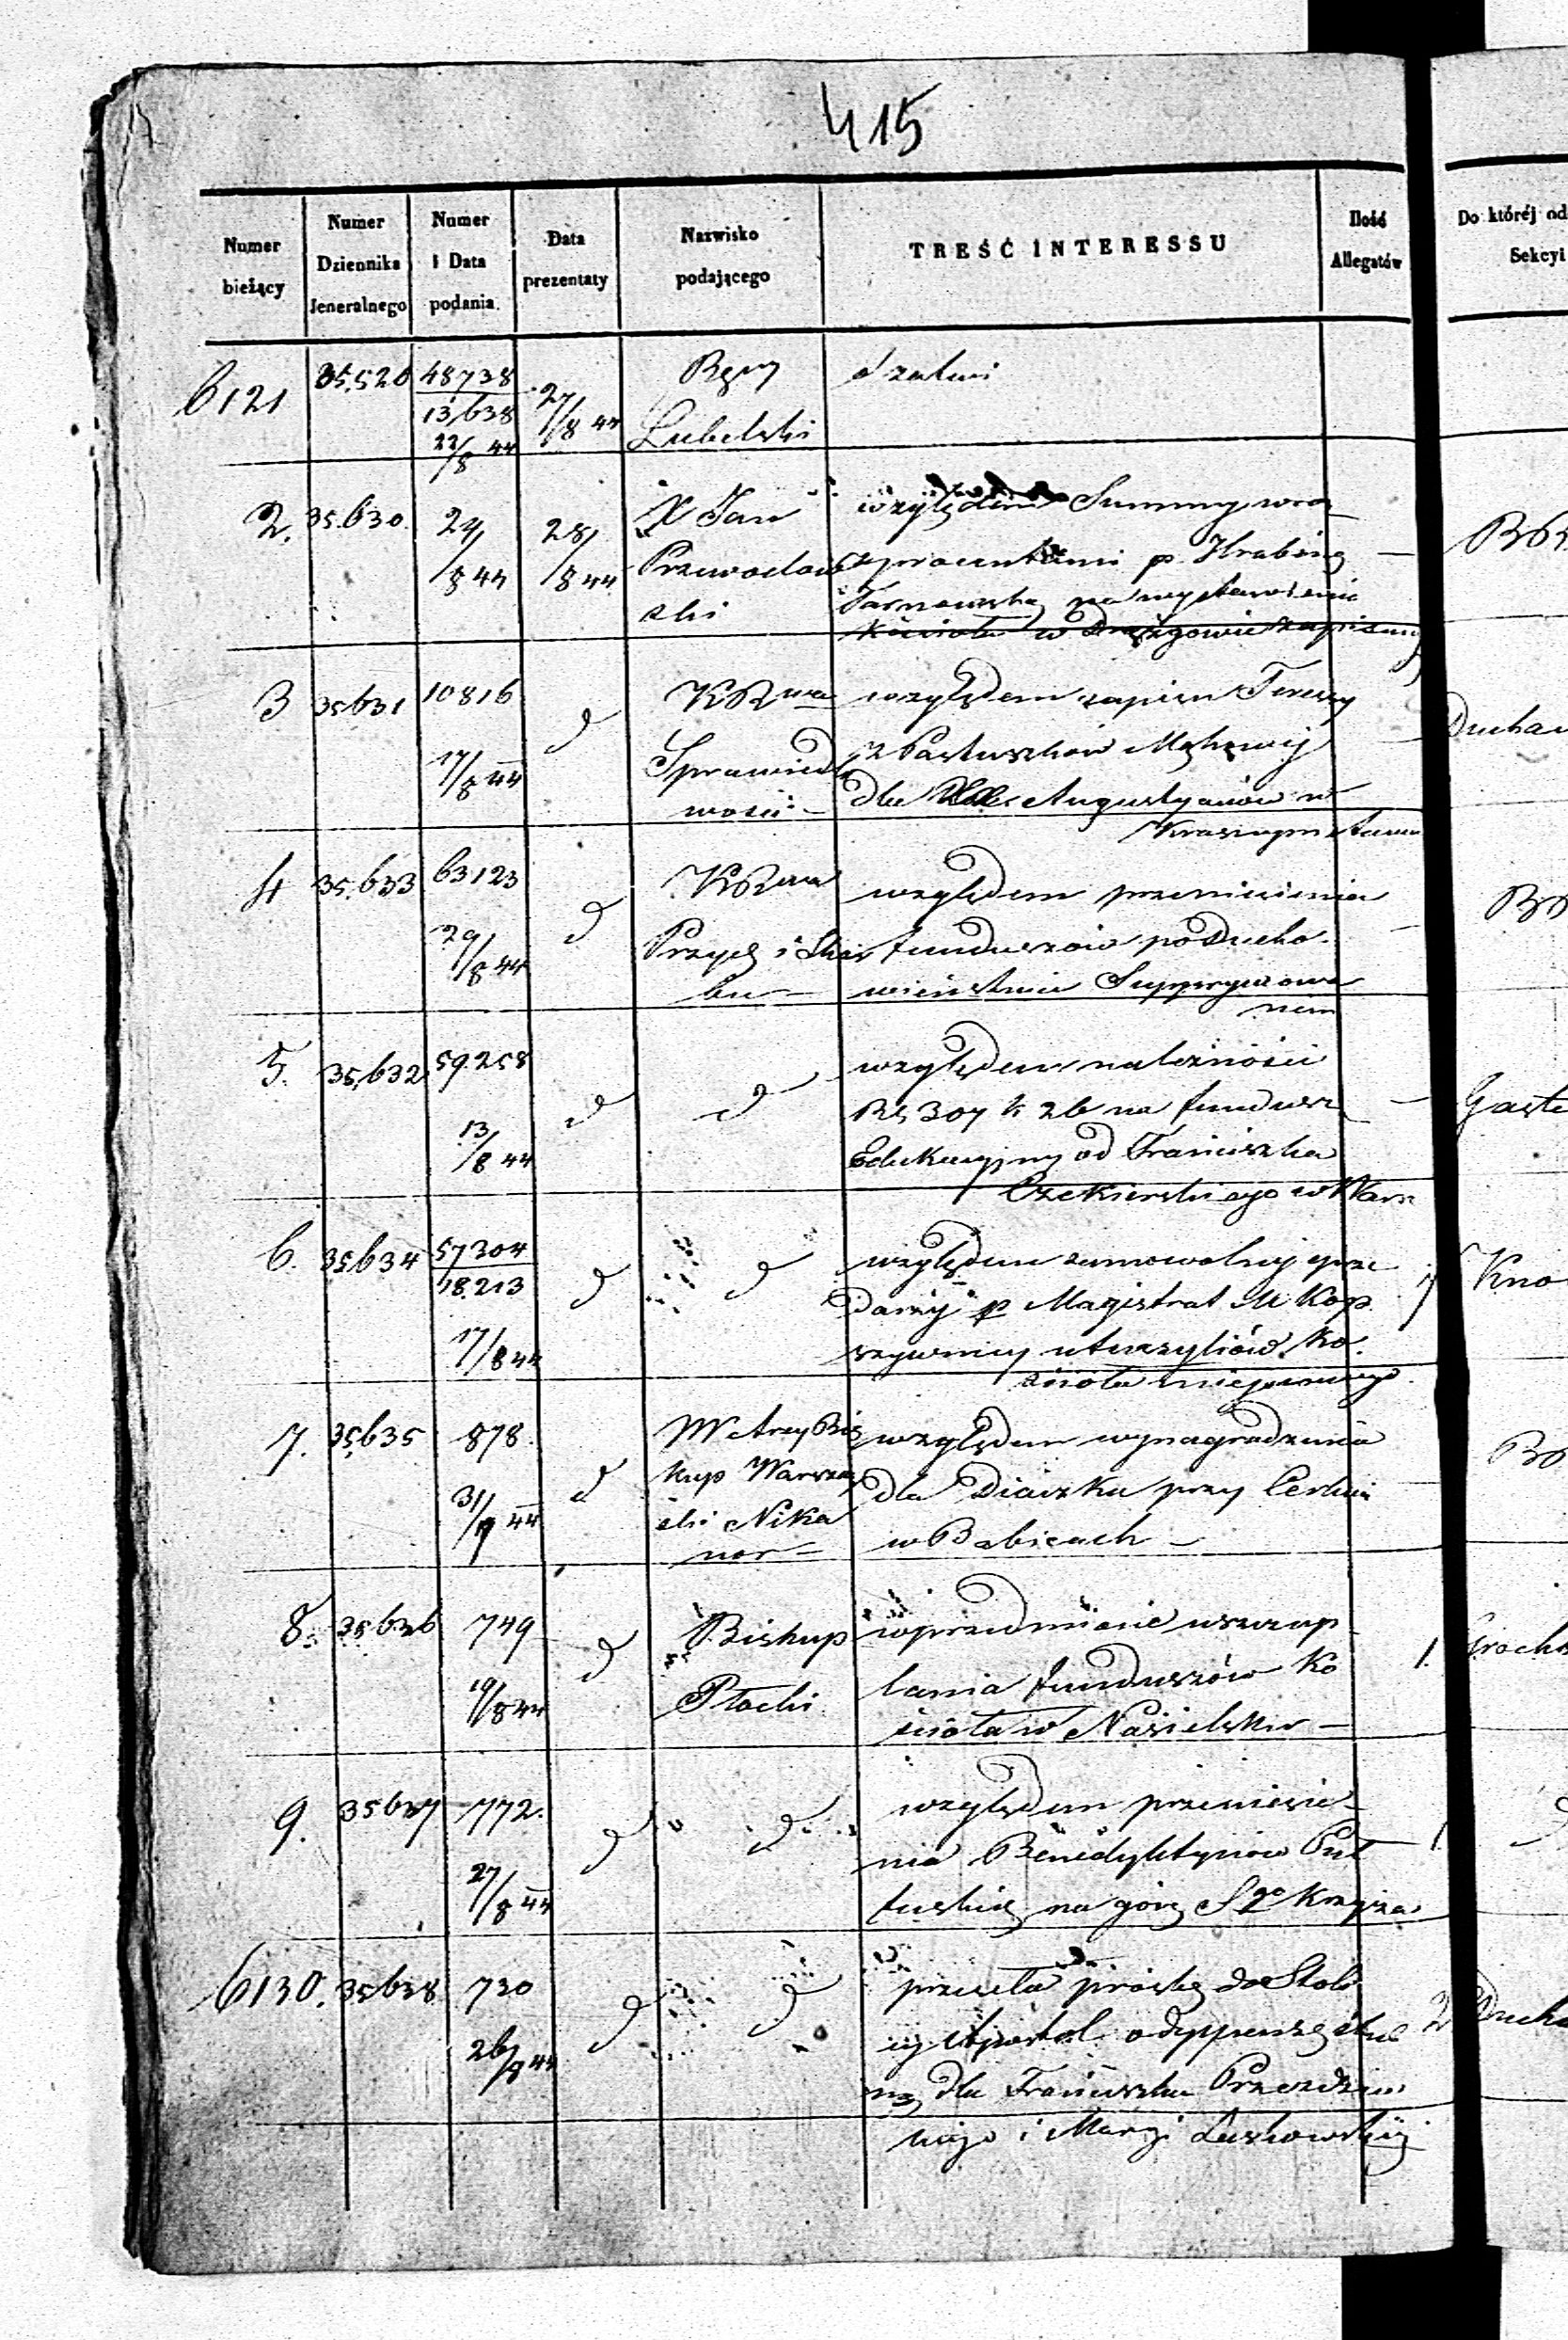 415
Numer bieżący
Numer Dziennika Jeneralnego
Numer i Data podania
Data prezentaty
Nazwisko podającego
TREŚĆ INTERESSU
Ilość Allegatów
Do któréj od
Sekcyi
6121
35.520
48738
13,638
22/8 44
27/8 44
Lubelski
2.
35.630.
24/8 44
28/8 44
X Jan
ski
względem Summy wra
z procentami p. Hrabinę
Tarnowską na wystawienie
Kościoła w zapisany
3
35631
10816
17/8 44
d
KR
Sprawiedli
wości
względem zapisu Teressy
z Pastuszków
dla Augustyanów w
Krasnymstawie
4
35.633
63123
29/8 44
d
KR
Przych i Skar
bu
względem przeniesienia
funduszów po Ducho
wieństwie Supprymowa
nem
5.
35,632
59.258
13/8 44
d
d
względem należności
Rs 307 k 26 na fundusz
Edukacyjny od Franciszka
Czekierskiego w Warsz
Gaste
6.
35634
57304
18.213
17/8 44
d
d
względem samowolnej sprze
darży p Magistrat M Kop
szywnicy utensyliów Ko
ścioła miejscowego
1
Kno
7.
35,635
878.
31/7 44
d
W Arcy Bis
kup Warszaw
ski Nika
nor
względem wynagrodzenia
dla Diaczka przy Cerkwi
w Babicach
8.
35.636
749
19/8 44
d
Biskup
Płocki
w przedmiocie uszczup
lania funduszów Ko
ścioła w Nasielsku
1.
9.
35637
772.
27/8 44
d
d
względem przeniesie
nia Benedyktynów Puł
tuskich na górę Sgo Krzyża
1
6130.
35638
730
26/8 44
d
d
przesyła prośbę do Stoli
cy Apostol. o dyspensę ślub
ną dla Franciszka
i Maryi Laskowskiej
2